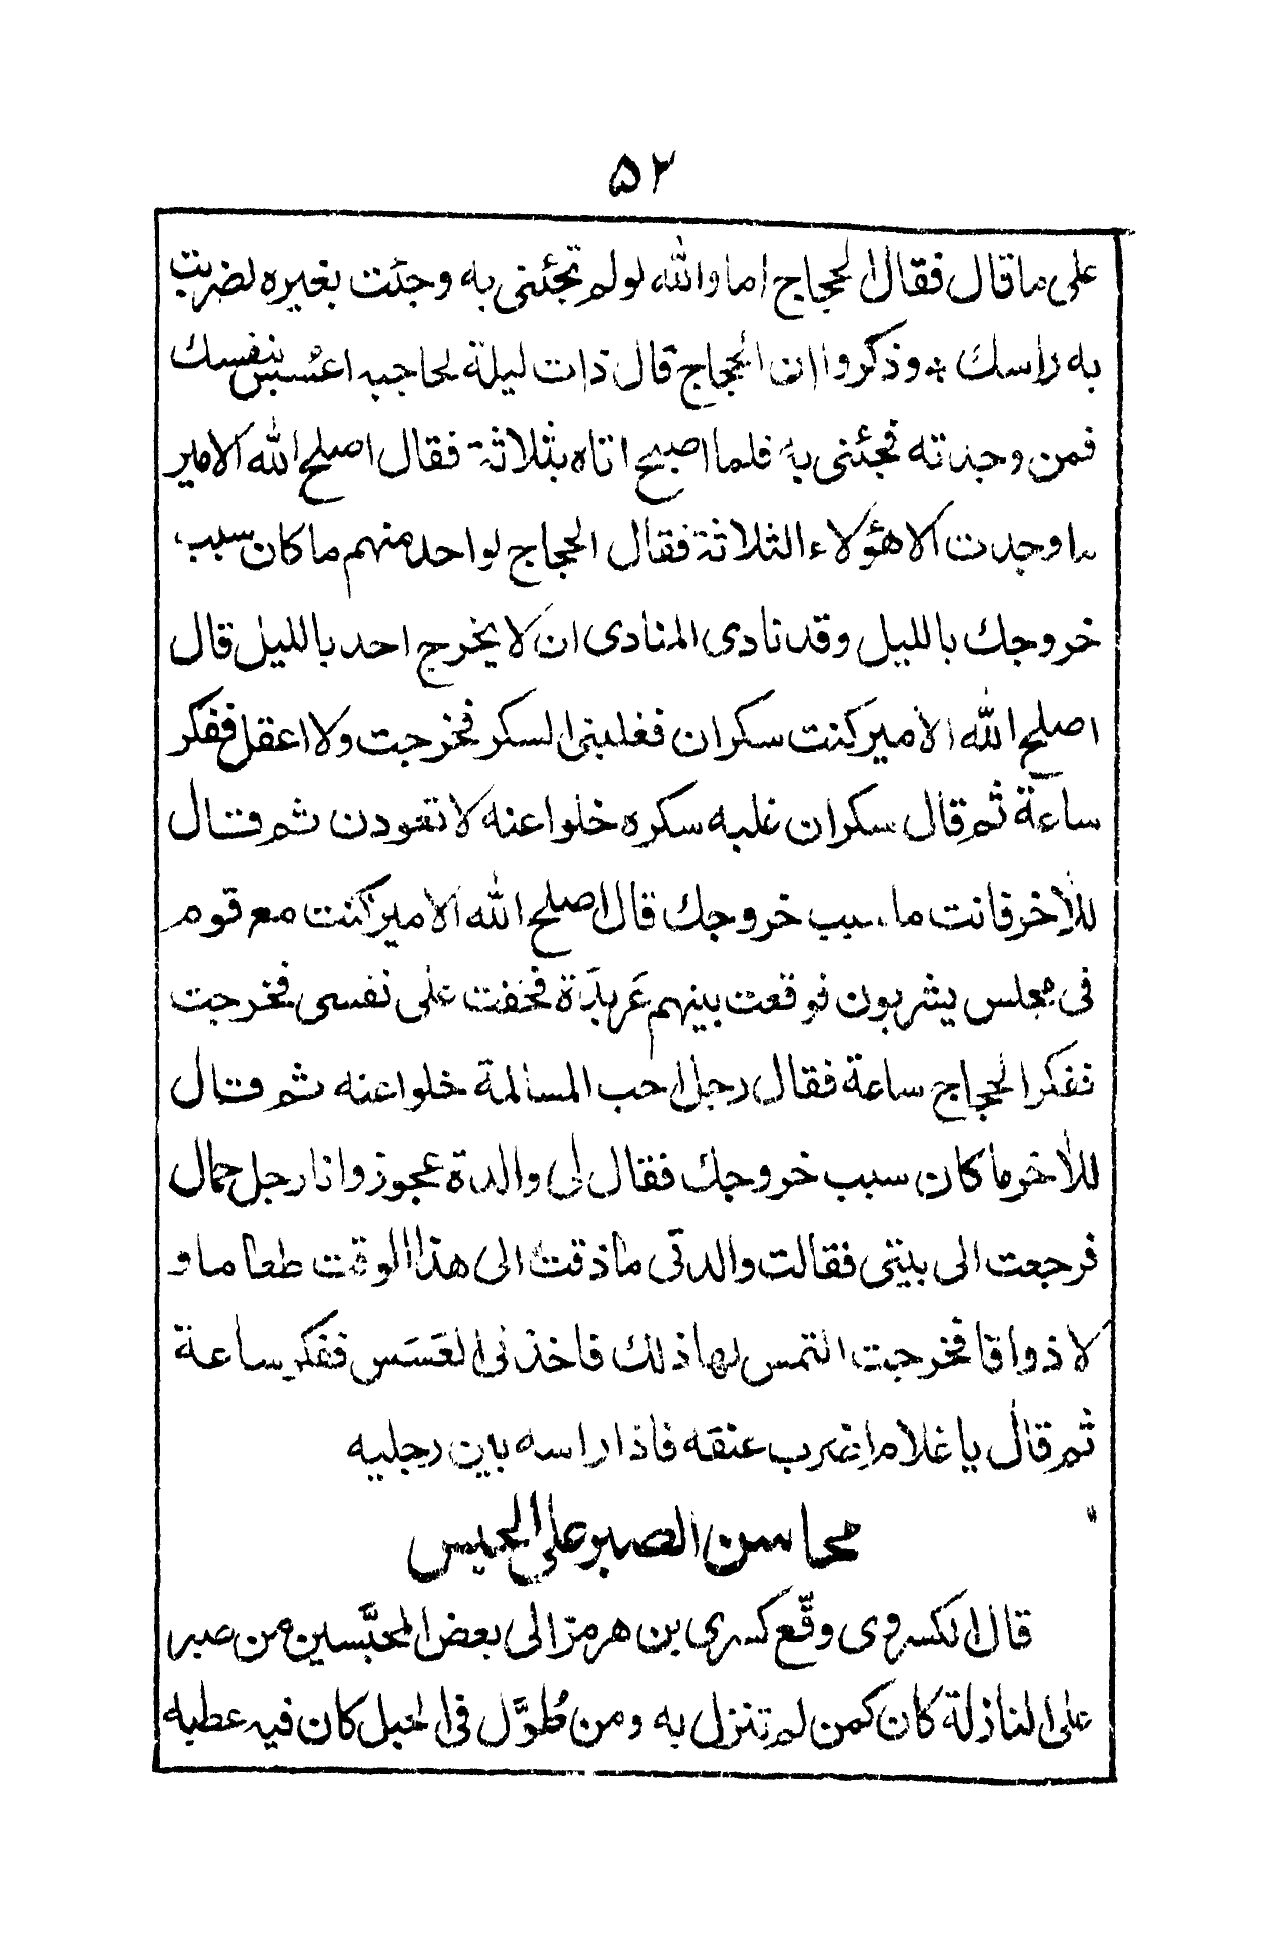 ٥٢
على ما قال فقال الحجاج اما والله لو لم تجئنى به وجئت بغيره لضربت
به راسك * وذكروا ان الحجاج قال ذات ليلة لحاجبه اعسس بنفسك
فمن وجدته فجئنى به فلما اصبح اتاه بثلاثة فقال اصلح الله الامير
ما وجدت الا هؤلاء الثلاثة فقال الحجاج لواحد منهم ما كان سبب
خروجك بالليل وقد نادى المنادى ان لا يخرج احد بالليل قال
اصلح الله الامير كنت سكران فغلبنى السكر فخرجت ولا اعقل ففكر
ساعة ثم قال سكران غلبه سكره خلوا عنه لا تعودن ثم قال
للآخر فانت ما سبب خروجك قال اصلح الله الامير كنت مع قوم
فى مجلس يشربون فوقعت بينهم عَربدَة فخفت على نفسى فخرجت
ففكر الحجاج ساعة فقال رجل احب المسالمة خلوا عنه ثم قال
للآخر ما كان سبب خروجك فقال لى والدة عجوز وانا رجل حمال
فرجعت الى بيتى فقالت والدتى ما ذقت الى هذا الوقت طعاما و
لا ذواقا فخرجت التمس لها ذلك فاخذنى العَسَس ففكر ساعة
ثم قال يا غلام اضرب عنقه فاذا راسه بين رجليه
محاسن الصبر على الحبس
قال الكسروى وقّع كسرى بن هرمز الى بعض المحبَّسين من صبر
على النازلة كان كمن لم تنزل به ومن طُوَّل فى الحبل كان فيه عطبه